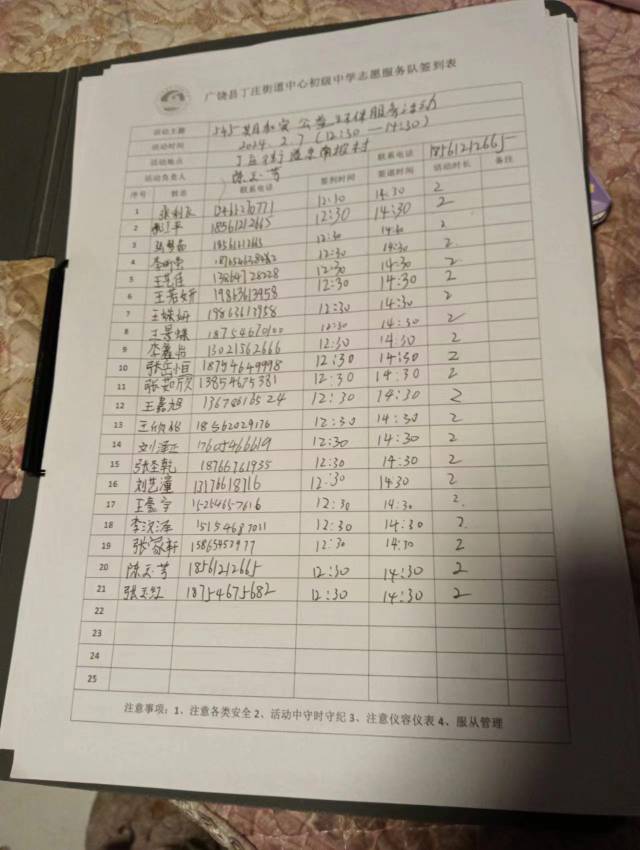 广饶县丁庄街道中心初级中学志愿服务队签到表
活动主题 公益 服务活动
活动时间 2024.2.7(12:30—14:30)
活动地点 丁庄街道 村 联系电话 18561212665
活动负责人 陈玉芳
序号 姓名 联系电话 签到时间 签退时间 活动时长 备注
1 12:30 14:30 2
2 18561212665 12:30 14:30 2
3 12:30 14:30 2
4 12:30 14:30 2
5 13864728228 12:30 14:30 2
6 王若妍 19863613958 12:30 14:30 2
7 19863613958 12:30 14:30 2
8 王景 12:30 14:30 2
9 李鑫 13021562666 12:30 14:30 2
10 张岳恒 18754649998 12:30 14:30 2
11 张茹欣 13854675381 12:30 14:30 2
12 王嘉旭 12:30 14:30 2
13 王欣 18562029176 12:30 14:30 2
14 刘泽正 17605466619 12:30 14:30 2
15 18766761935 12:30 14:30 2
16 刘艺潼 12:30 14:30 2
17 王 宇 12:30 14:30 2
18 李 泽 15154687011 12:30 14:30 2
19 张家轩 12:30 14:30 2
20 陈玉芳 18561212665 12:30 14:30 2
21 张玉红 18754675682 12:30 14:30 2
22
23
24
25
注意事项:1、注意各类安全 2、活动中守时守纪 3、注意仪容仪表 4、服从管理